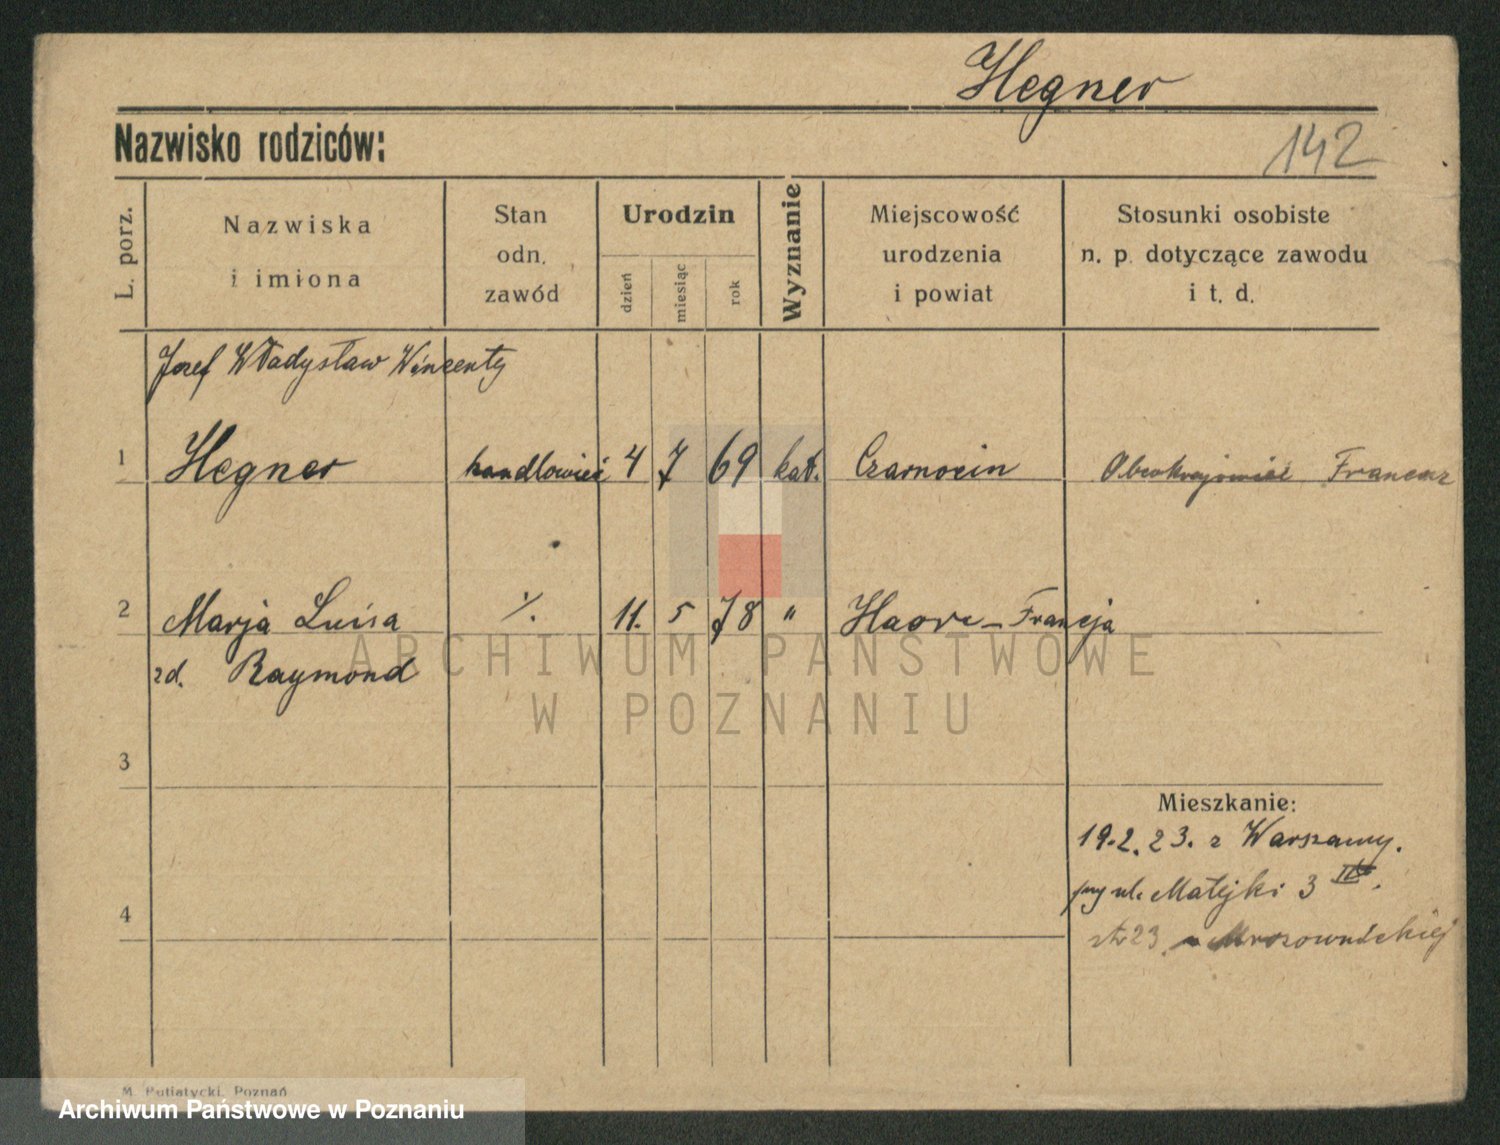 Hegner
Nazwisko rodziców:
142
L. porz.
Nazwiska
i imiona
Stan
odn.
zawód
Urodzin
dzień
miesiąc
rok
Wyznanie
Miejscowość
urodzenia
i powiat
Stosunki osobiste
n. p. dotyczące zawodu
i t. d.
Jozef Władysław Wincenty
1 Hegner handlowiec 4 7 69 kat. Czarnocin Obcokrajowiec Francuz
2 Marja Luisa ./. 11. 5 78 " Havre - Francja
zd. Raymond
3
Mieszkanie:
19.2.23. z Warszawy.
przy ul. Matejki 3
4
23 u Mrozowińskiej
ARCHIWUM PAŃSTWOWE
W POZNANIU
M. Putiatycki, Poznań
Archiwum Państwowe w Poznaniu